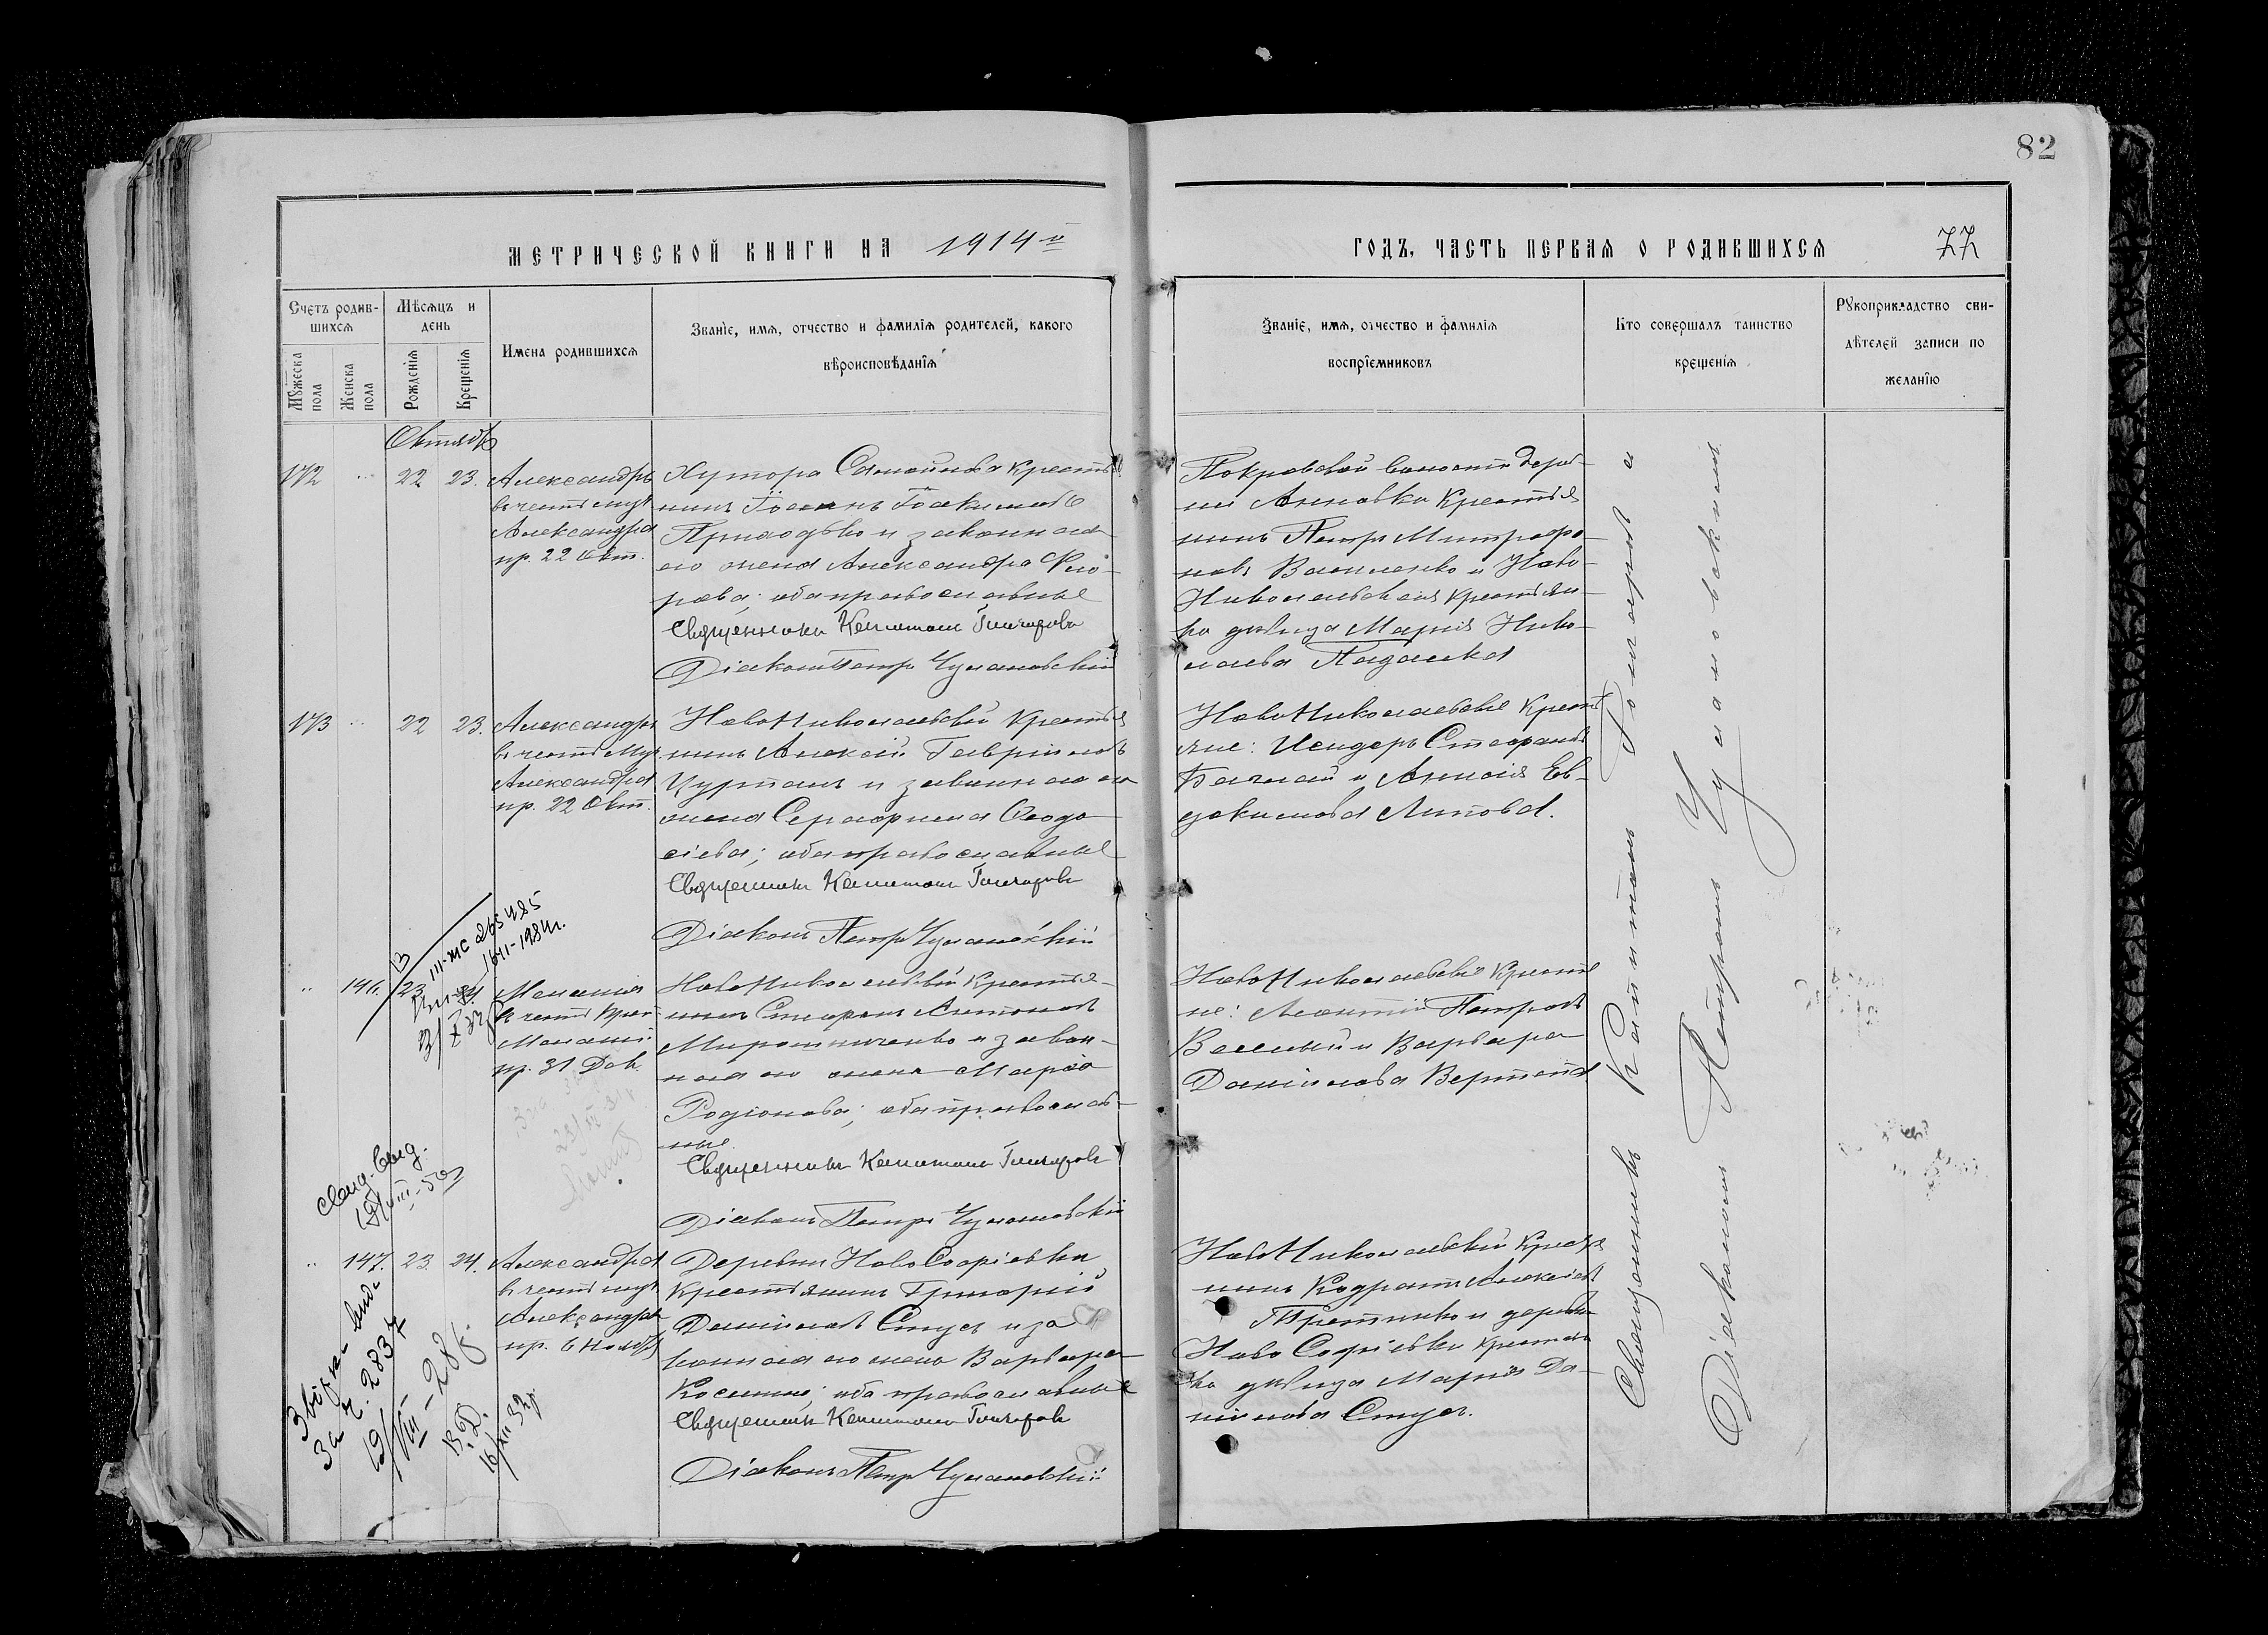 82
МЕТРИЧЕСКОЙ КНИГИ НА 1914 й
ГОДЪ, ЧАСТЬ ПЕРВАЯ О РОДИВШИХСЯ
77
Счетъ родив-
шихся
Мужеска
пола
Женска
пола
Мѣсяцъ и
день
Рожденія
Крещенія
Имена родившихся
Званіе, имя, отчество и фамилія родителей, какого
вѣроисповѣданія
Званіе, имя, отчество и фамилія
воспріемниковъ
Кто совершалъ таинство
крещенія
Рукоприкладство сви-
дѣтелей записи по
желанію
Октябрь
172 22 23.
Александръ
въ честь муч
Александра
пр. 22 Окт.
Хутора крестья
нинъ Іоакимовъ
Приходько и законная
его жена Александра
оба православные
Священникъ Капитонъ Гончаровъ
Діаконъ Петръ Чулановскій
Покровской волости дерев-
ни Анновки крестья
нинъ Петръ Митрофа-
новъ Василенко и Ново-
Николаевская крестьян-
ка дѣвица Марія Нико-
лаева
173 22 23.
Александръ
въ честь муч.
Александра
пр. 22 Окт.
НовоНиколаевскій крестья
нинъ Алексѣй Гавріиловъ
Цуртанъ и законная его
жена Серафима Ѳеодо
сіева; оба православные
Священникъ Капитонъ Гончаровъ
Діаконъ Петръ Чулановскій
НовоНиколаевскіе кресть
яне: Исидоръ Стефановъ
и Евдокимова Липова.
146. 23 24
Меланія
въ честь
Меланіи
пр. 31 Дек.
НовоНиколаевскій крестья-
нинъ Стефанъ Антоновъ
Мирошниченко и закон-
ная его жена Марія
Родіонова; оба православ-
ные.
Священникъ Капитонъ Гончаровъ
Діаконъ Петръ Чулановскій
НовоНиколаевскіе крестья
не: Леонтій Петровъ
и Варвара
Даніилова
147. 23. 24.
Александра
въ честь муч
Александры
пр. 6 Ноября
Деревни НовоСофіевки
крестьянинъ Григорій
Даніиловъ Стусъ и за
конная его жена Варвара
Косьмина; оба православные
Священникъ Капитонъ Гончаровъ
Діаконъ Петръ Чулановскій
НовоНиколаевскій крестья
нинъ Кодратъ Алексѣевъ
и деревни
Ново Софіевки крестьян
ка дѣвица Марія Да-
ніилова Стусъ.
Священникъ Капитонъ Гончаровъ и
Діаконъ Петръ Чулановскій
III-ЖС 265485
за г. 2837
19/VIII-28р.
16/XII 32р.